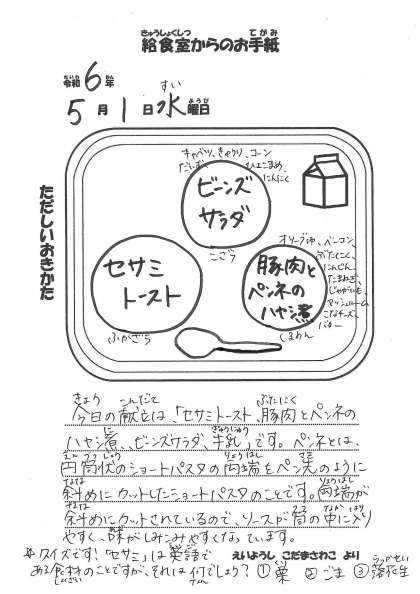 給食室からのお手紙
令和6年
5月1日水曜日
ただしいおきかた
キャベツ、きゅうり、コーン
だいず、ひよこまめ、
にんにく
ビーンズ
サラダ
こざら
セサミ
トースト
ふかざら
オリーブゆ、ベーコン、
ぶたにく、
にんじん、
たまねぎ、
じゃがいも、
マッシュルーム、
こなチーズ、
バター
豚肉と
ペンネの
ハヤシ煮
しるわん
今日の献立は、「セサミトースト、豚肉とペンネの
ハヤシ煮、ビーンズサラダ、牛乳」です。ペンネとは、
円筒状のショートパスタの両端をペン先のように
斜めにカットしたショートパスタのことです。両端が
斜めにカットされているので、ソースが筒の中に入り
やすく、味がしみこみやすくなっています。
えいようし こだまさわこ より
クイズです!「セサミ」は英語で
ある食材のことですが、それは何でしょう?①栗 ②ごま ③落花生